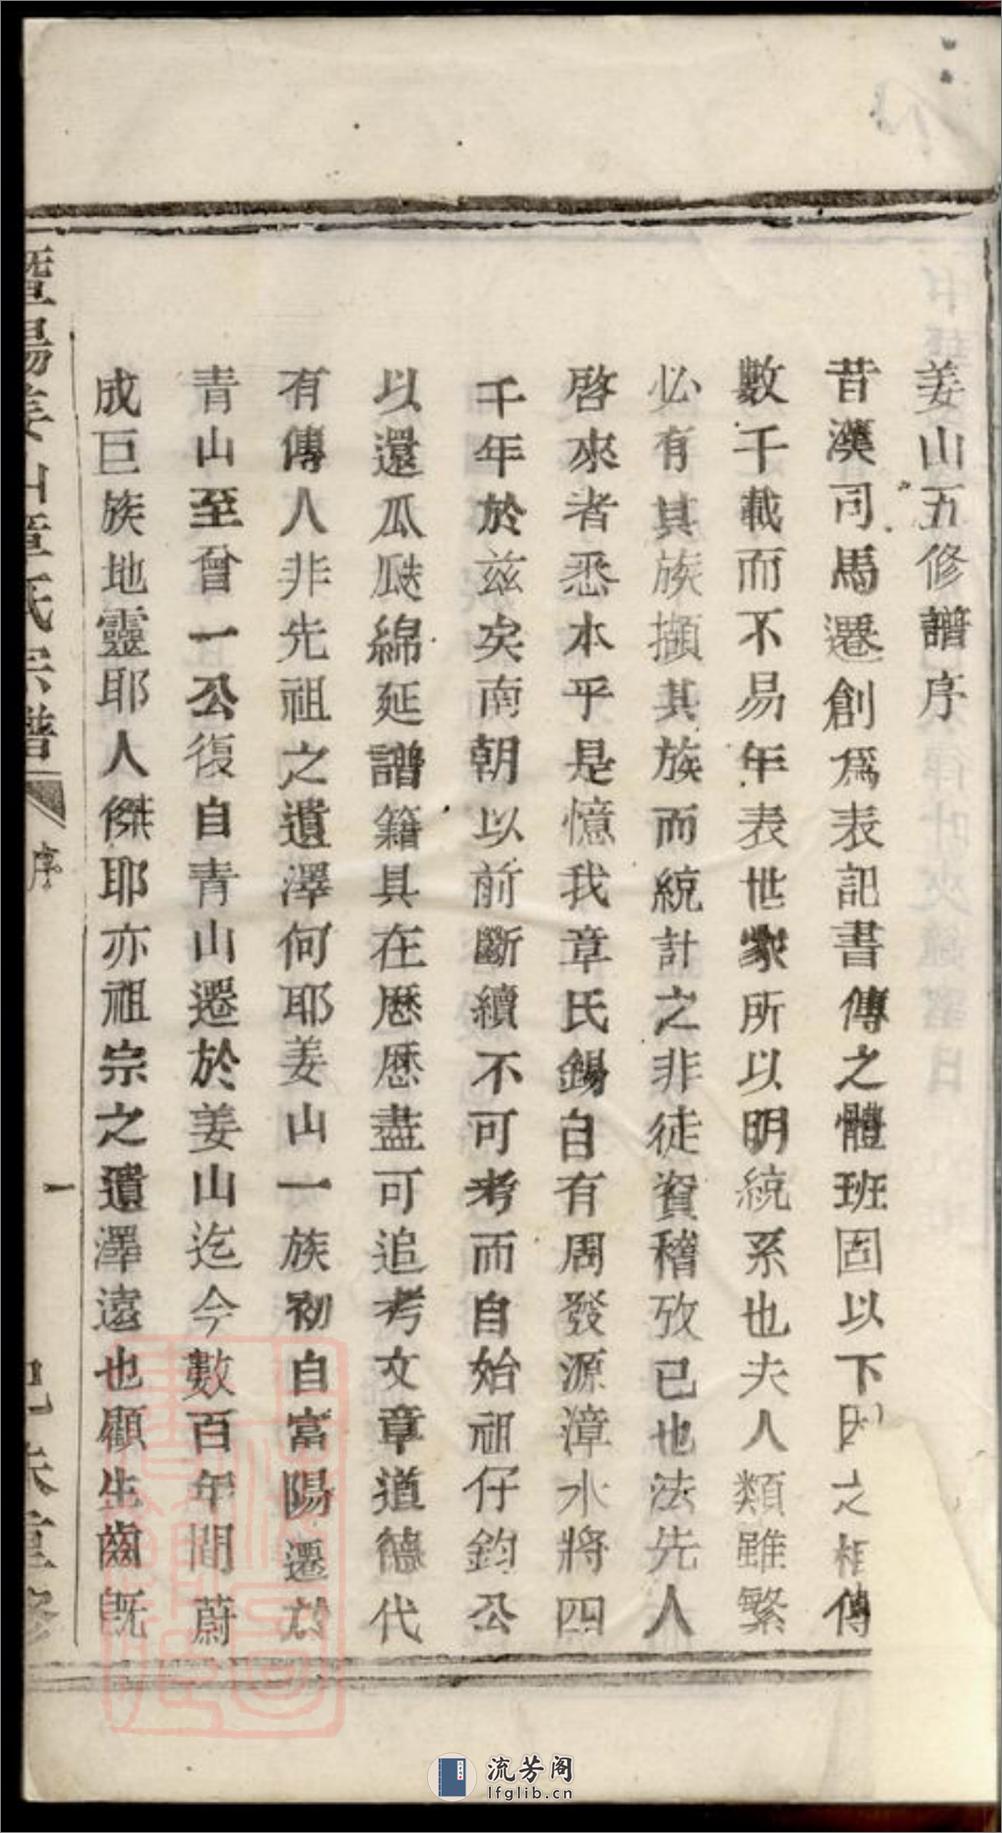 姜山五修譜序
昔漢司馬遷創爲表記書傳之體班固以下因之相傳
數千載而不易年表世家所以明統系也夫人類雖繁
必有其族擷其族而統計之非徒資稽攷已也法先人
啓來者悉本乎是憶我章氏錫自有周發源漳水將四
千年於兹矣南朝以前斷續不可考而自始祖仔鈞公
以還瓜瓞綿延譜籍具在歷歷盡可追考文章道德代
有傳人非先祖之遺澤何耶姜山一族初自富陽遷於
青山至曾一公復自青山遷於姜山迄今數百年間蔚
成巨族地靈耶人傑耶亦祖宗之遺澤遠也顧生齒旣
暨陽姜山章氏宗譜 序 一
流芳阁
lfglib.cn